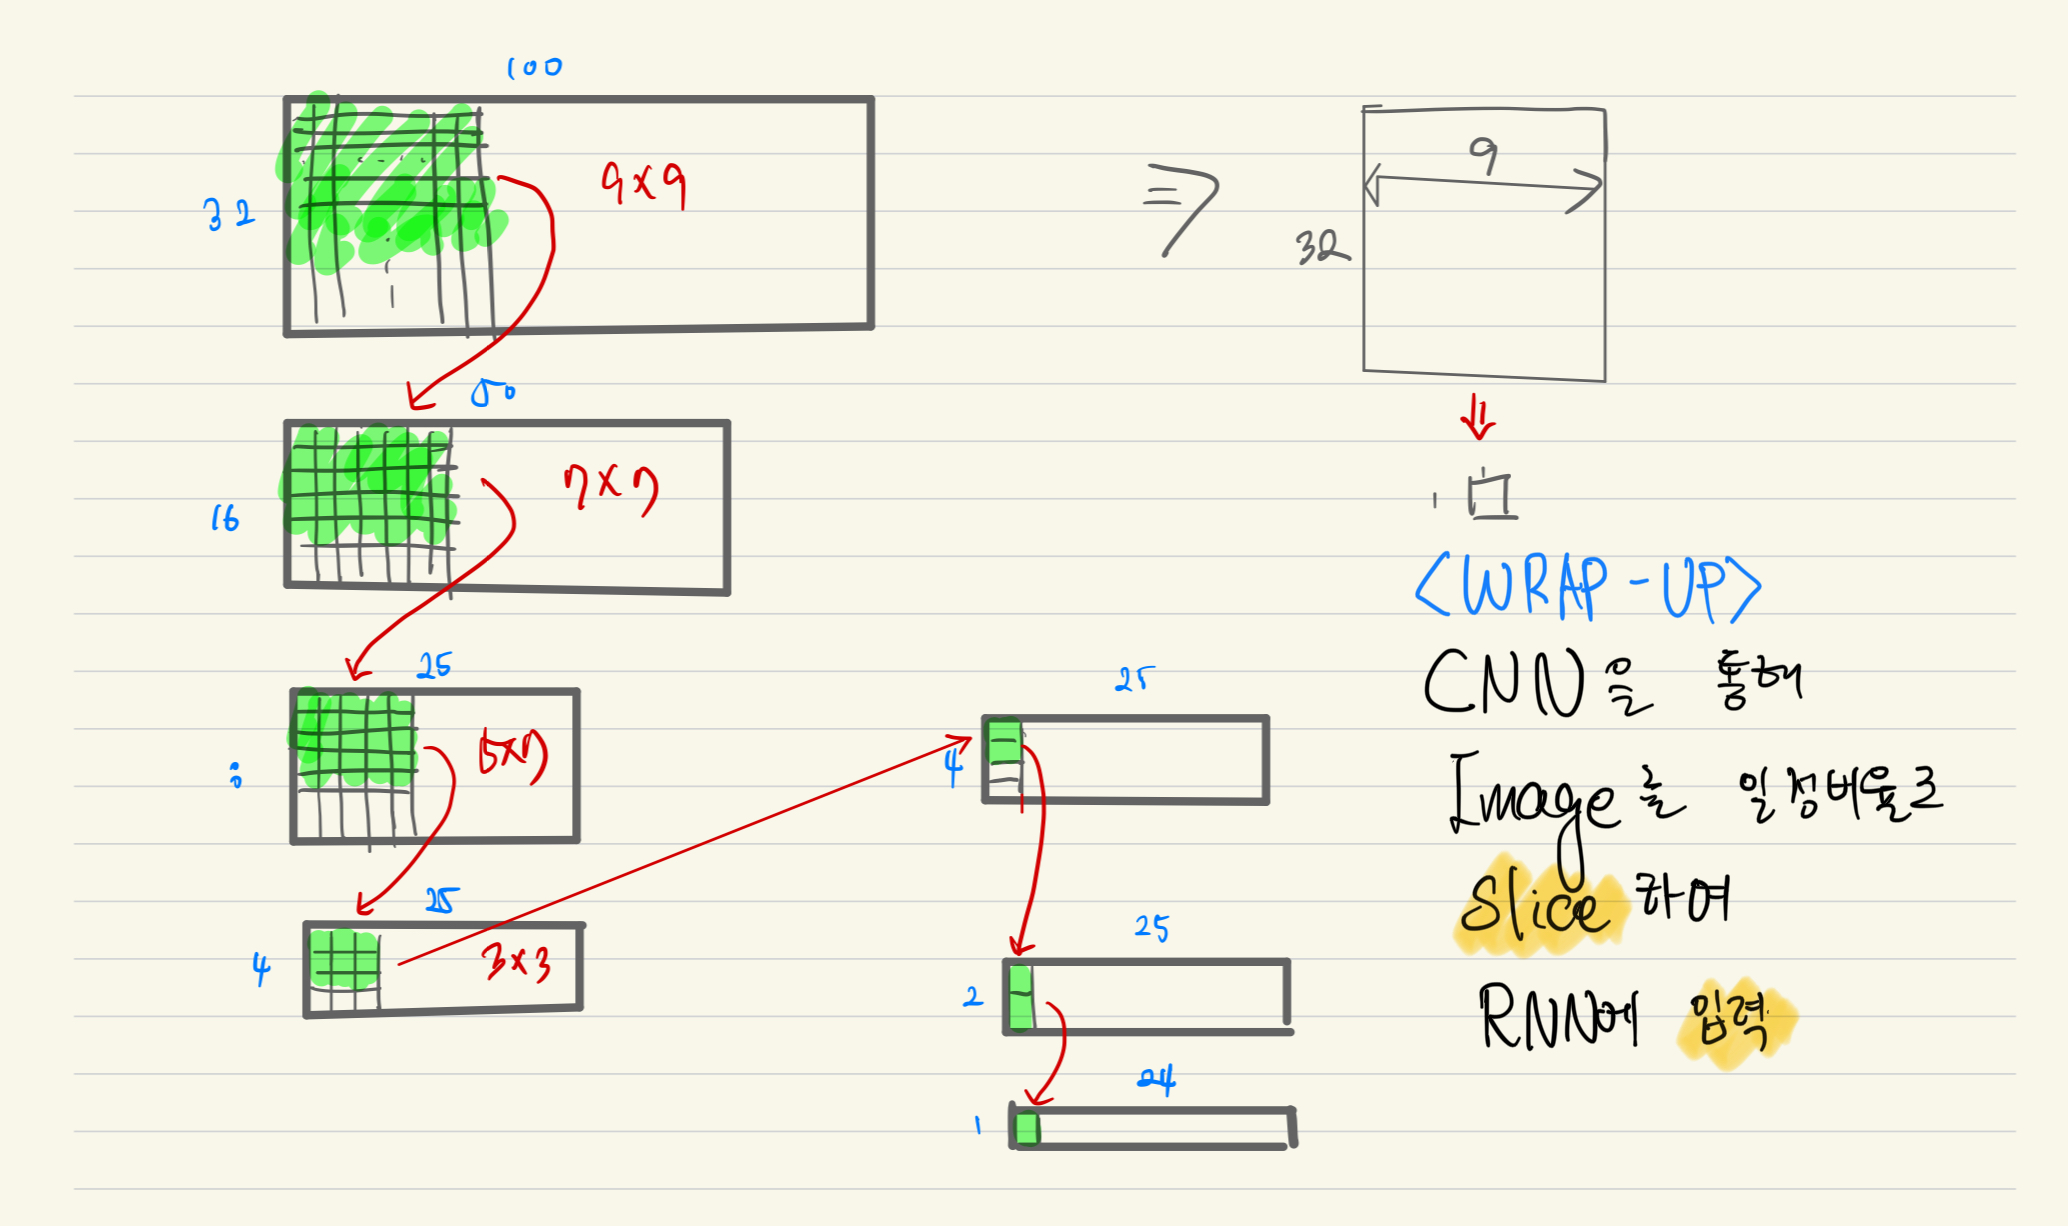 100
32
9×9
50
16
7×7
25
8
5×7
25
4
3×3
25
4
25
2
24
1
⇒
9
32
1
1
<WRAP-UP>
CNN을 통해
Image를 일정비율로
Slice 하여
RNN에 입력